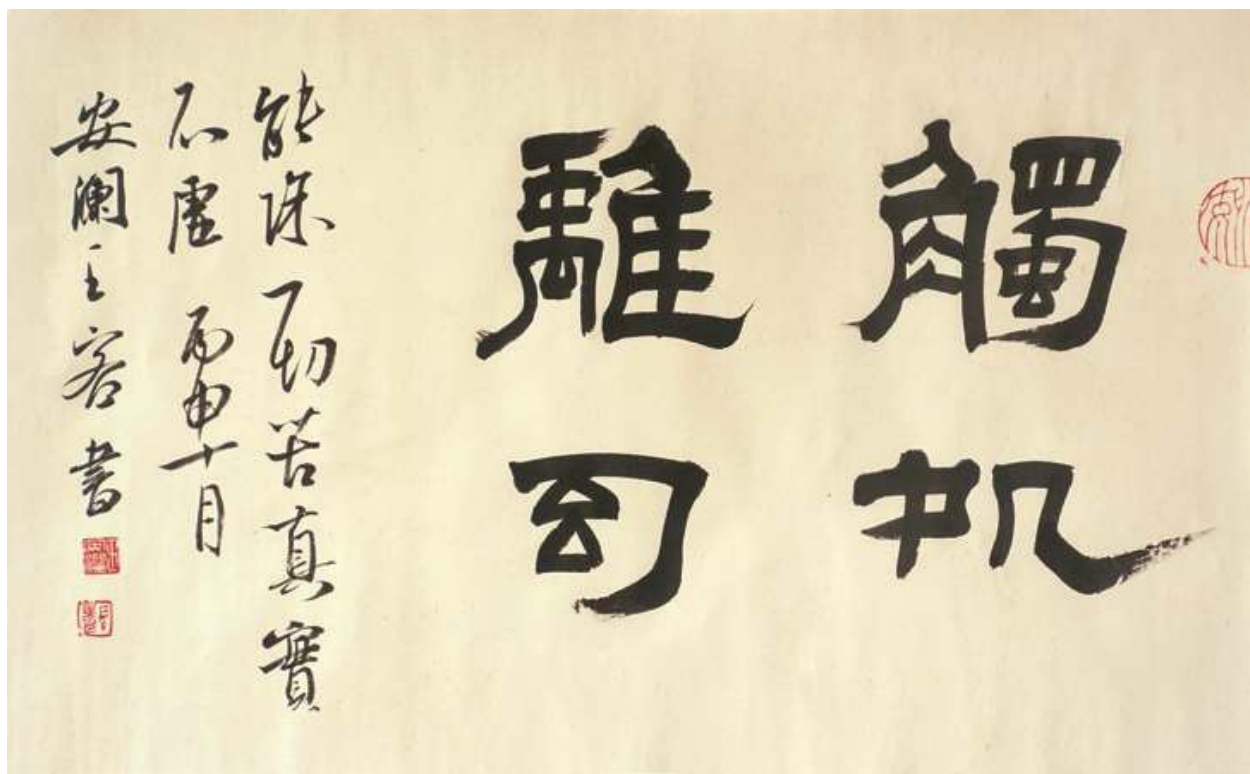 觸机
離幻
能除一切苦真實
不虛 丙申十月
安瀾主客書